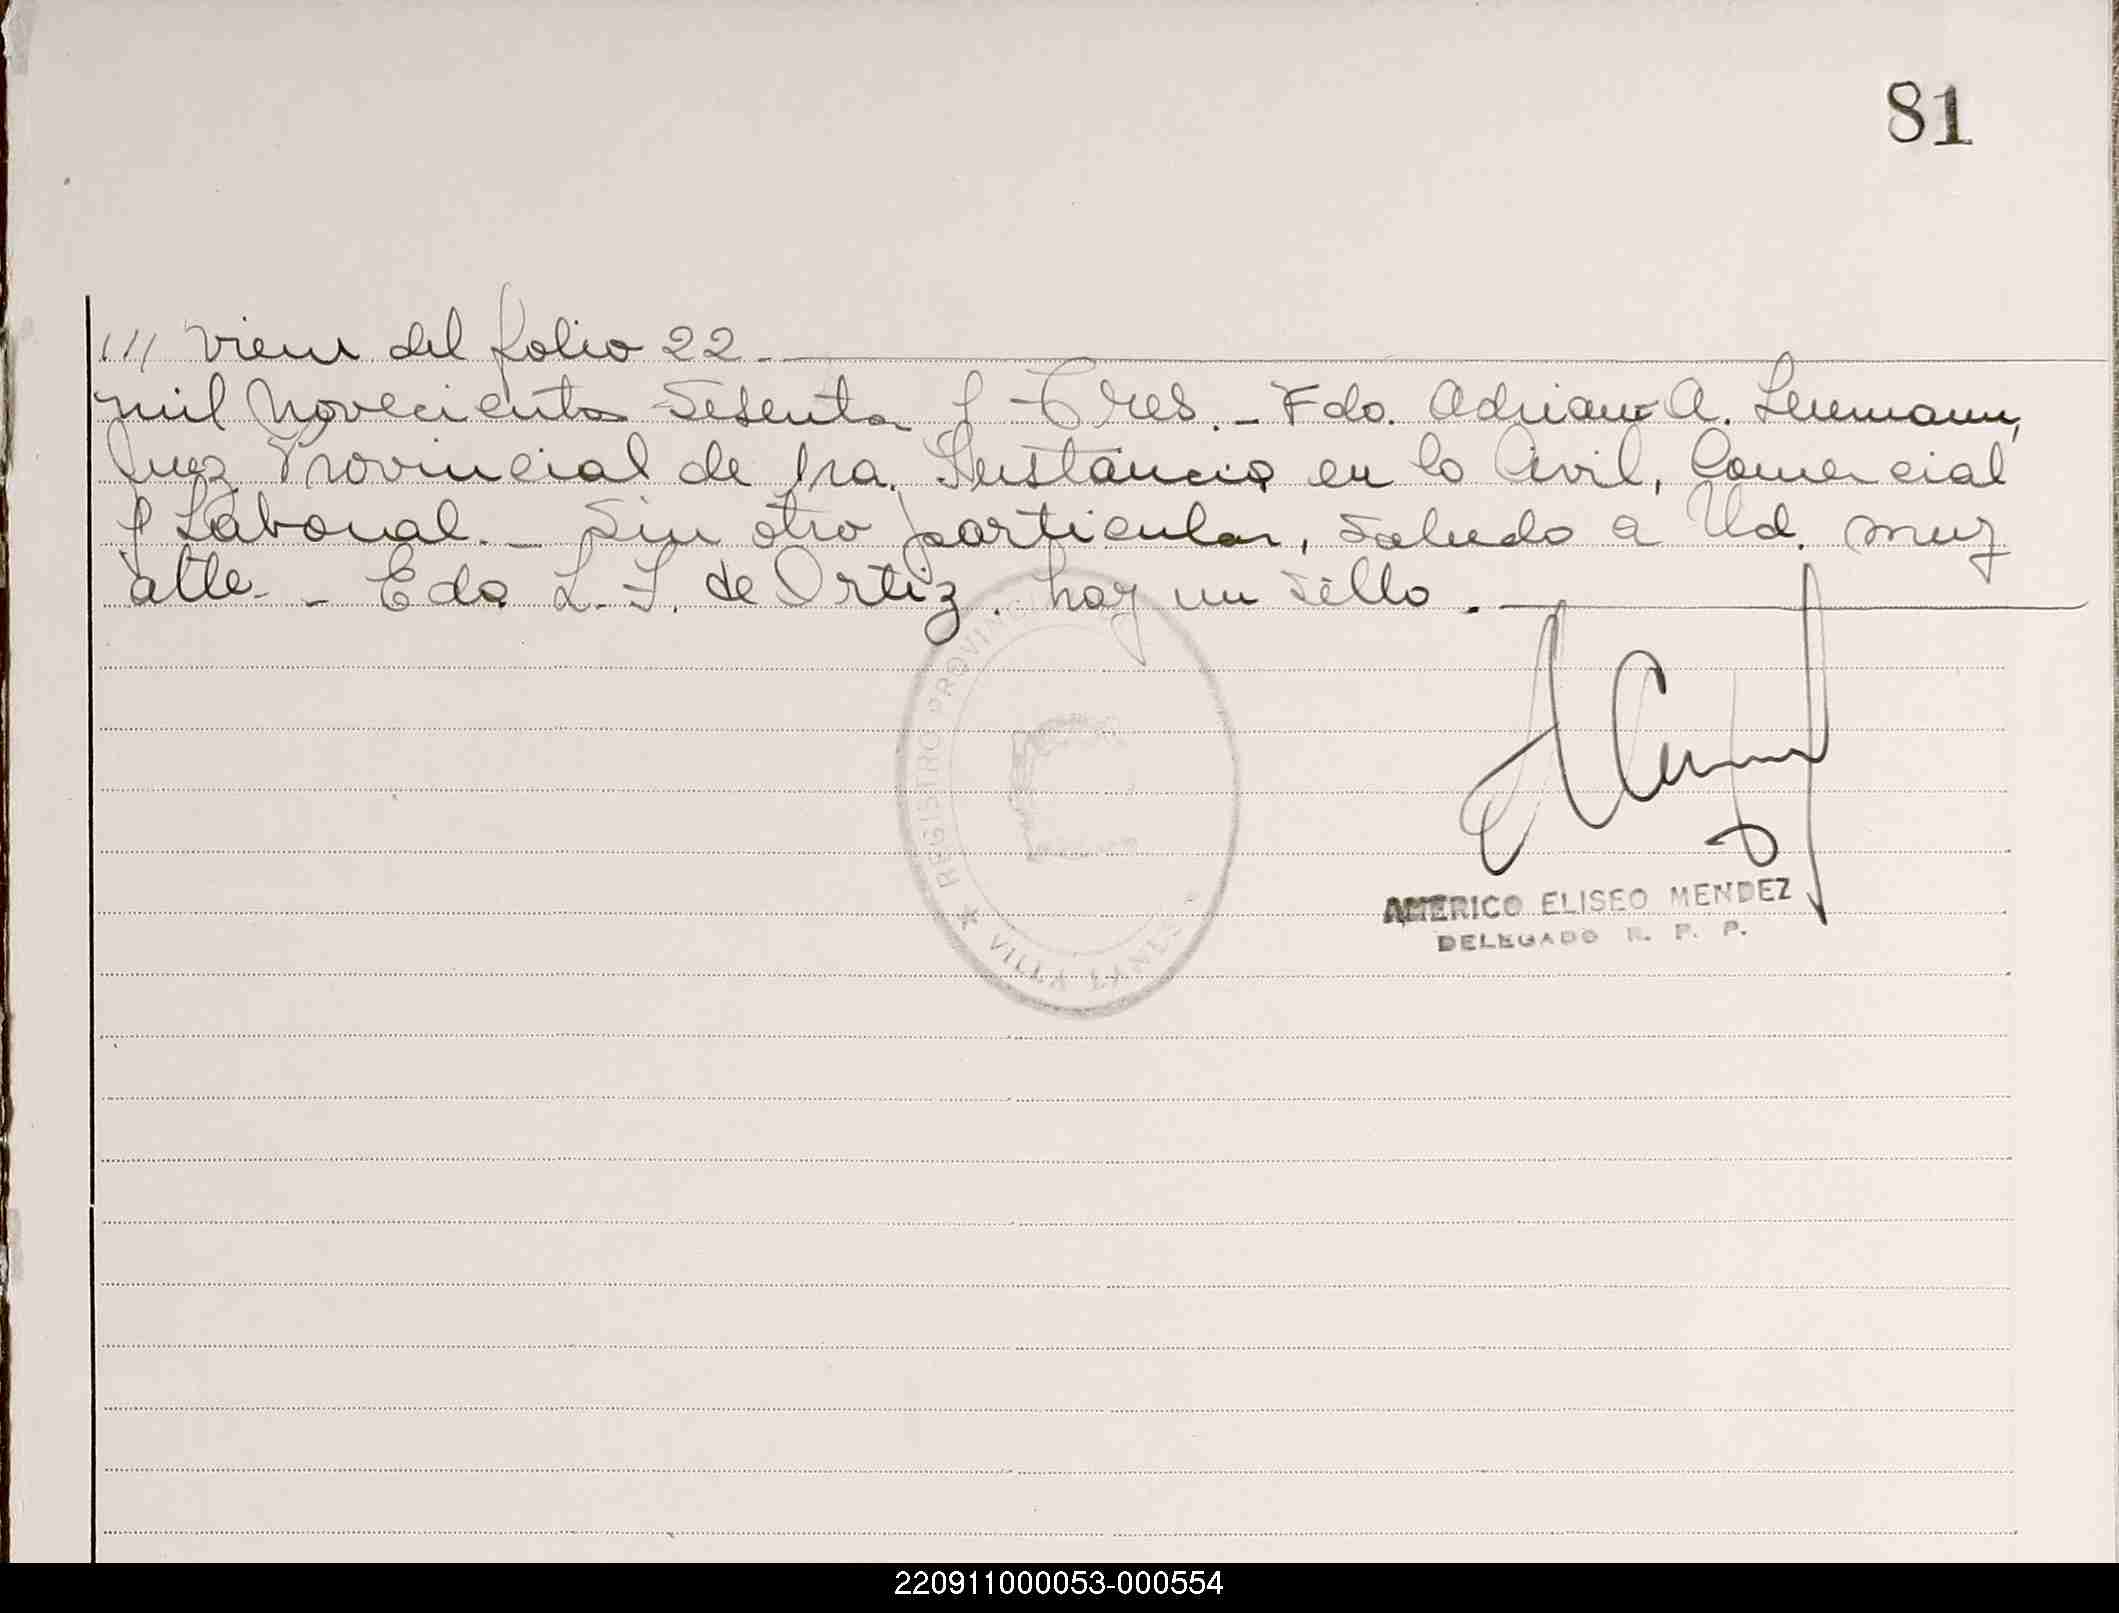 81
/// viene del folio 22.-
mil novecientos sesenta y tres.- Fdo. Adriana A.
Juez Provincial de 1ra. Instancia en lo Civil, Comercial
y Laboral.- Sin otro particular, saludo a Ud. muy
atte.- Edo L. S. de Ortiz. hay un sello.-
★ REGISTRO PROVINCIAL
VILLA
AMERICO ELISEO MENDEZ
DELEGADO R. P. P.
220911000053-000554